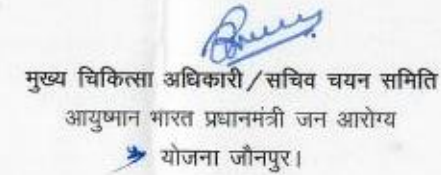 मुख्य चिकित्सा अधिकारी/सचिव चयन समिति
आयुष्मान भारत प्रधानमंत्री जन आरोग्य
योजना जौनपुर।